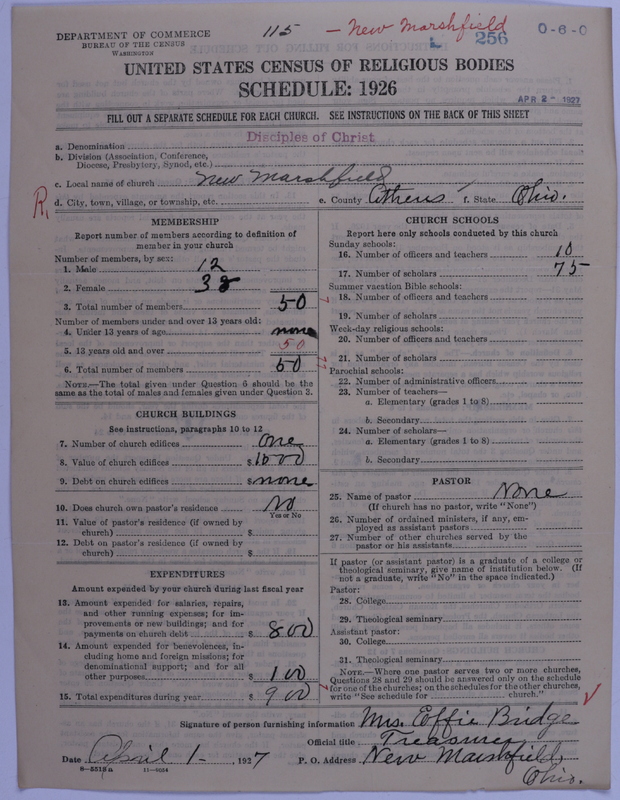 DEPARTMENT OF COMMERCE
BUREAU OF THE CENSUS
WASHINGTON
115 — New Marshfield
256
0-6-0
UNITED STATES CENSUS OF RELIGIOUS BODIES
SCHEDULE: 1926
APR 2 - 1927
FILL OUT A SEPARATE SCHEDULE FOR EACH CHURCH. SEE INSTRUCTIONS ON THE BACK OF THIS SHEET
Disciples of Christ
a. Denomination
b. Division (Association, Conference,
Diocese, Presbytery, Synod, etc.)
c. Local name of church New Marshfield
d. City, town, village, or township, etc. e. County Athens f. State Ohio.
R,
MEMBERSHIP
Report number of members according to definition of
member in your church
Number of members, by sex:
1. Male 12
2. Female 38
3. Total number of members 50
Number of members under and over 13 years old:
4. Under 13 years of age none
5. 13 years old and over 50
6. Total number of members 50
NOTE.—The total given under Question 6 should be the
same as the total of males and females given under Question 3.
CHURCH BUILDINGS
See instructions, paragraphs 10 to 12
7. Number of church edifices One
8. Value of church edifices $1000
9. Debt on church edifices $none
10. Does church own pastor's residence No
Yes or No
11. Value of pastor's residence (if owned by
church) $
12. Debt on pastor's residence (if owned by
church) $
EXPENDITURES
Amount expended by your church during last fiscal year
13. Amount expended for salaries, repairs,
and other running expenses; for im-
provements or new buildings; and for
payments on church debt $800
14. Amount expended for benevolences, in-
cluding home and foreign missions; for
denominational support; and for all
other purposes $100
15. Total expenditures during year $900
CHURCH SCHOOLS
Report here only schools conducted by this church
Sunday schools:
16. Number of officers and teachers 10
17. Number of scholars 75
Summer vacation Bible schools:
18. Number of officers and teachers
19. Number of scholars
Week-day religious schools:
20. Number of officers and teachers
21. Number of scholars
Parochial schools:
22. Number of administrative officers
23. Number of teachers—
a. Elementary (grades 1 to 8)
b. Secondary
24. Number of scholars—
a. Elementary (grades 1 to 8)
b. Secondary
PASTOR
25. Name of pastor None
(If church has no pastor, write "None")
26. Number of ordained ministers, if any, em-
ployed as assistant pastors
27. Number of other churches served by the
pastor or his assistants
If pastor (or assistant pastor) is a graduate of a college or
theological seminary, give name of institution below. (If
not a graduate, write "No" in the space indicated.)
Pastor:
28. College
29. Theological seminary
Assistant pastor:
30. College
31. Theological seminary
NOTE.—Where one pastor serves two or more churches,
Questions 28 and 29 should be answered only on the schedule
for one of the churches; on the schedules for the other churches,
write "See schedule for church."
Signature of person furnishing information Mrs. Effie Bridge
Official title Treasurer
Date April 1-, 1927 P. O. Address New Marshfield,
Ohio.
8-5513a 11-8034